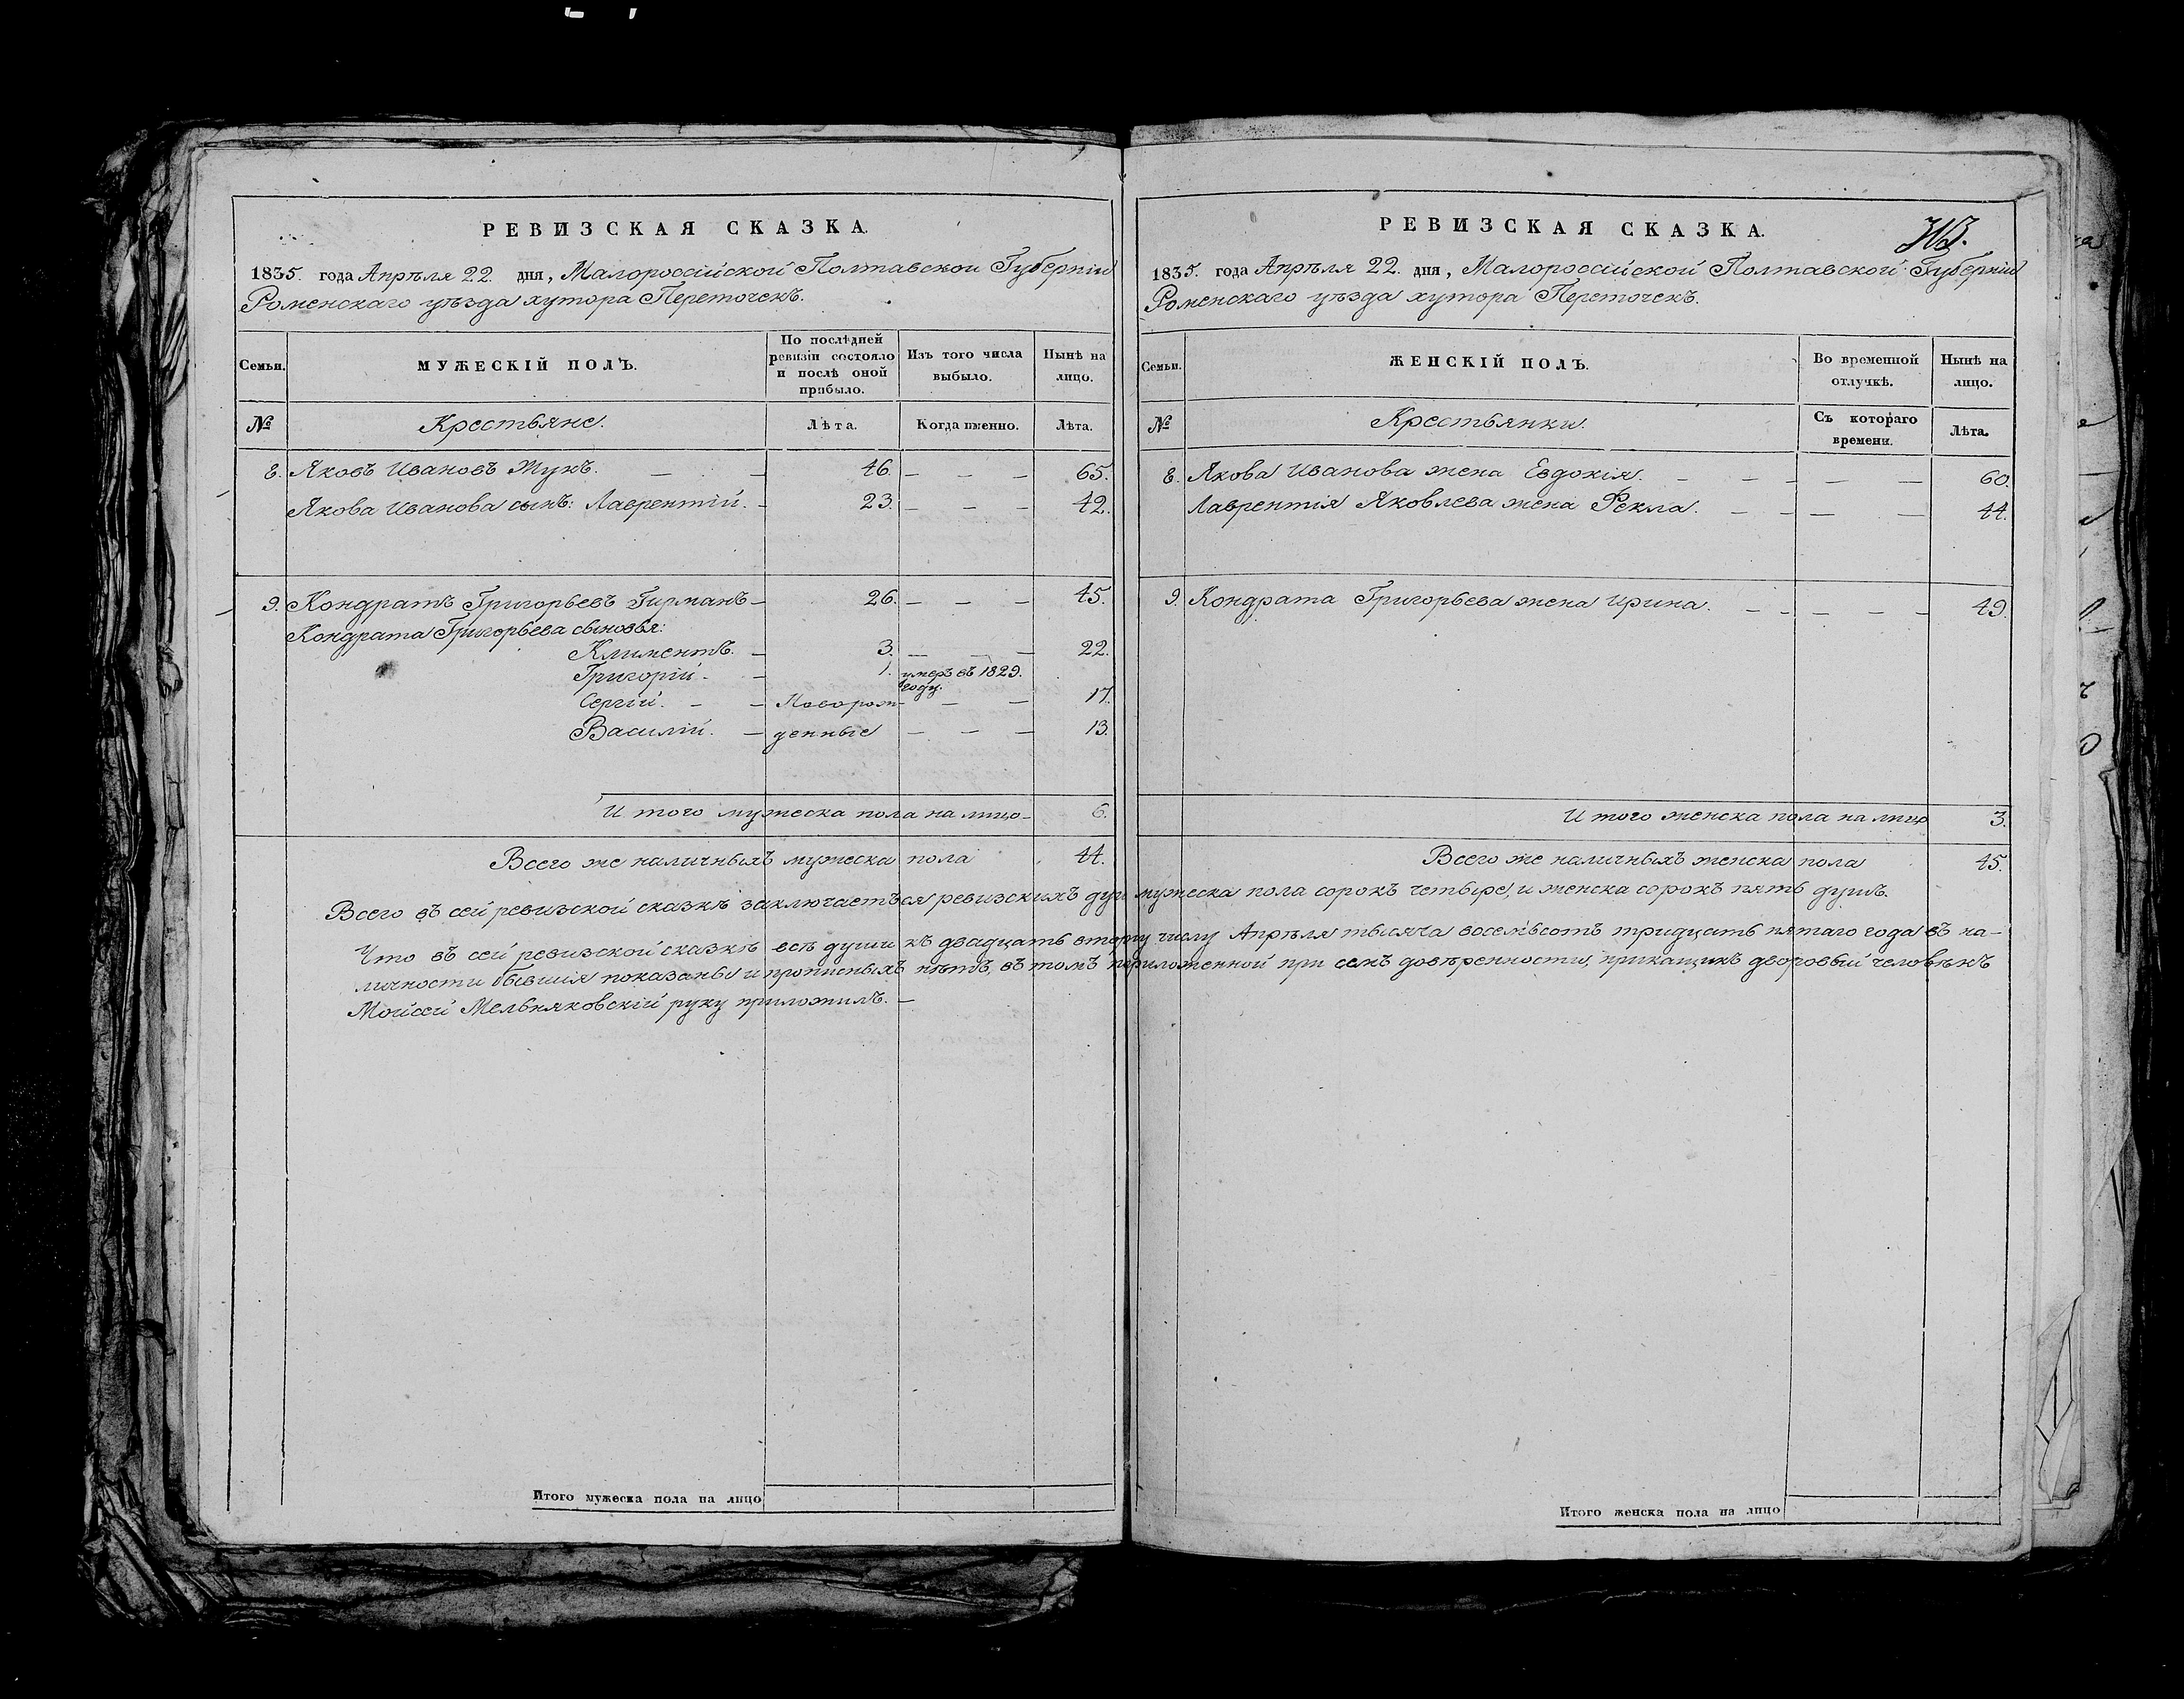 РЕВИЗСКАЯ СКАЗКА.
1835. года Апрѣля 22. дня, Малороссійской Полтавской Губерніи
Роменскаго уѣзда хутора Переточекъ.
Семьи.
МУЖЕСКІЙ ПОЛЪ.
По послѣдней ревизіи состояло и послѣ оной прибыло.
Изъ того числа выбыло.
Нынѣ на лицо.
№ Крестьяне. Лѣта. Когда именно. Лѣта.
8. Яковъ Ивановъ Жукъ. — — 46. — — — 65.
Якова Иванова сынъ: Лаврентій. — 23. — — — 42.
9. Кондратъ Григорьевъ Гирманъ — 26. — — — 45.
Кондрата Григорьева сыновья:
Климентъ. — 3. — — — 22.
Григорій. — 1. умеръ въ 1829.
году.
Сергій. — — Поворож- — — 17.
Василій. — денные — — — 13.
И того мужеска пола на лицо — 6.
Всего же наличныхъ мужеска пола 44.
РЕВИЗСКАЯ СКАЗКА.
1835. года Апрѣля 22. дня, Малороссійской Полтавской Губерніи
Роменскаго уѣзда хутора Переточекъ.
Семьи.
ЖЕНСКІЙ ПОЛЪ.
Во временной отлучкѣ.
Нынѣ на лицо.
№ Крестьянки. Съ котораго времени. Лѣта.
8. Якова Иванова жена Евдокія. — — — — — 60.
Лаврентія Яковлева жена Фекла. — — — — 44.
9. Кондрата Григорьева жена Ирина. — — — — — 49.
И того женска пола на лицо 3.
Всего же наличныхъ женска пола 45.
Всего въ сей ревизской сказкѣ заключается ревизскихъ душ мужеска пола сорокъ четыре, и женска сорокъ пять душъ.
Что въ сей ревизской сказкѣ всѣ души къ двадцать второму числу Апрѣля тысяча восемьсотъ тридцать пятаго года въ на-
личности бывшія показаны и прописныхъ нѣтъ, въ томъ приложенной при семъ довѣренности, прикащикъ дворовый человѣкъ
Мойсей Мельняковскій руку приложилъ. —
Итого мужеска пола на лицо
Итого женска пола на лицо